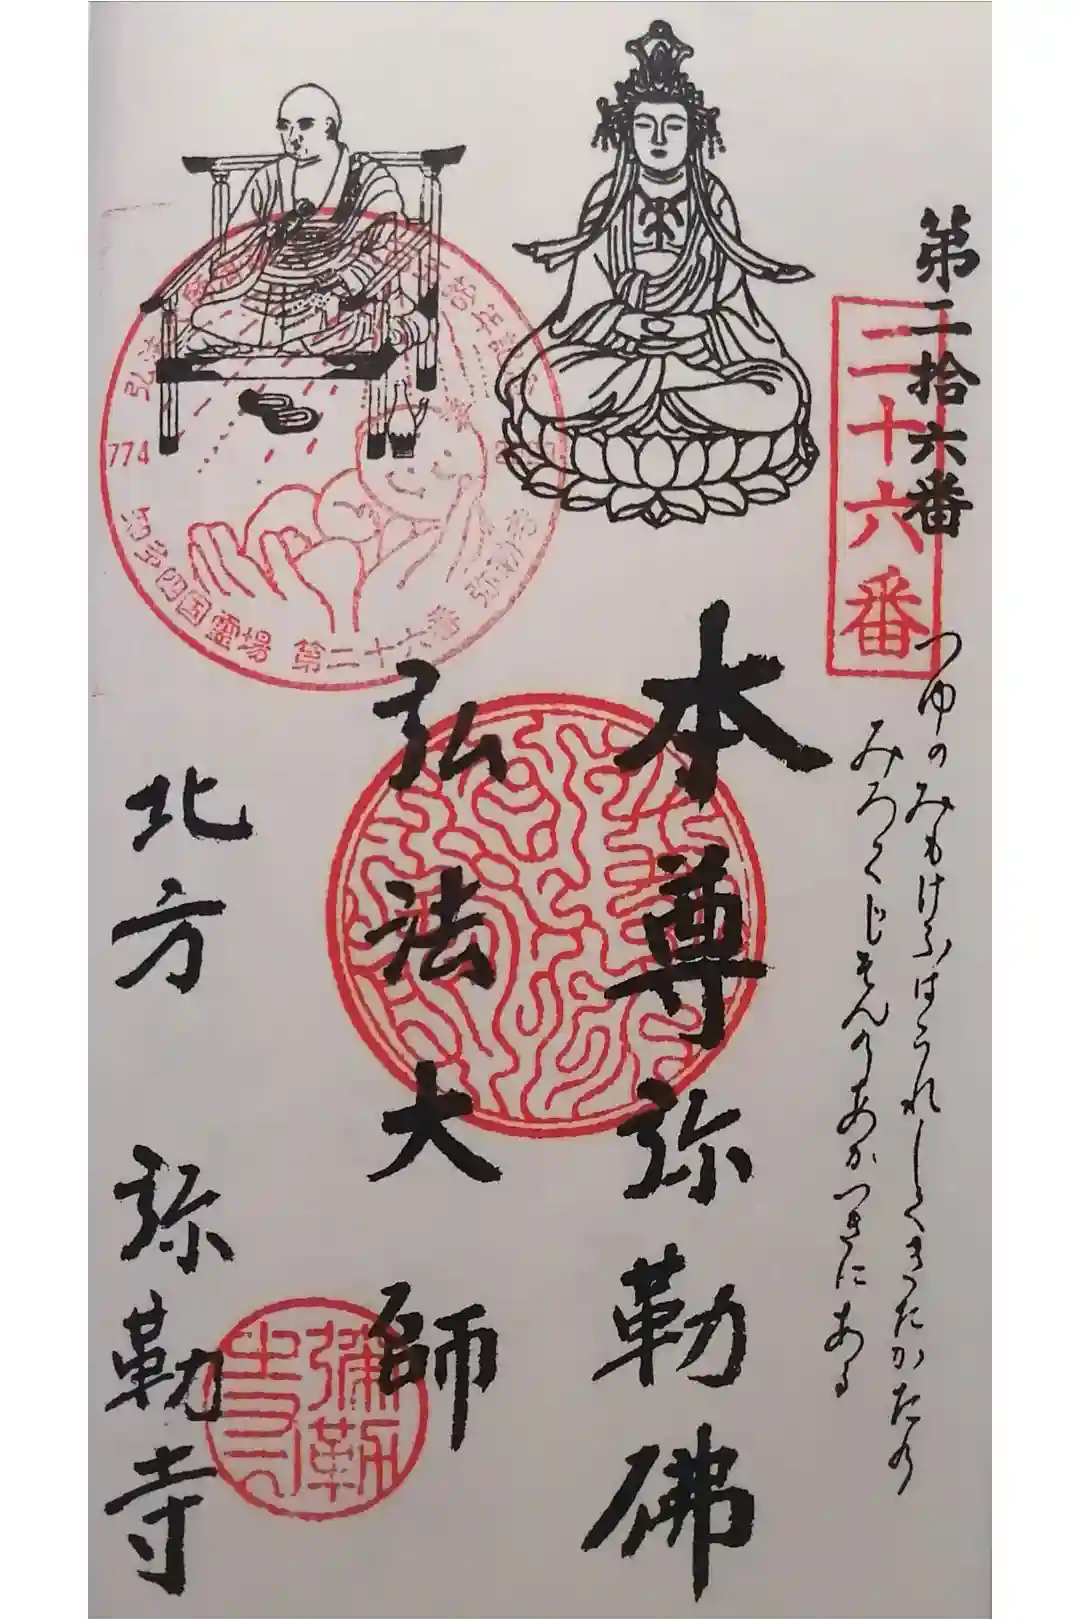 第二拾六番
二十六番
つゆのみもけふはうれしくきたかたの
みろくじそんのあかつきにある
本尊弥勒佛
弘法大師
北方 弥勒寺
774
知多四国霊場 第二十六番 弥勒寺
彌勒